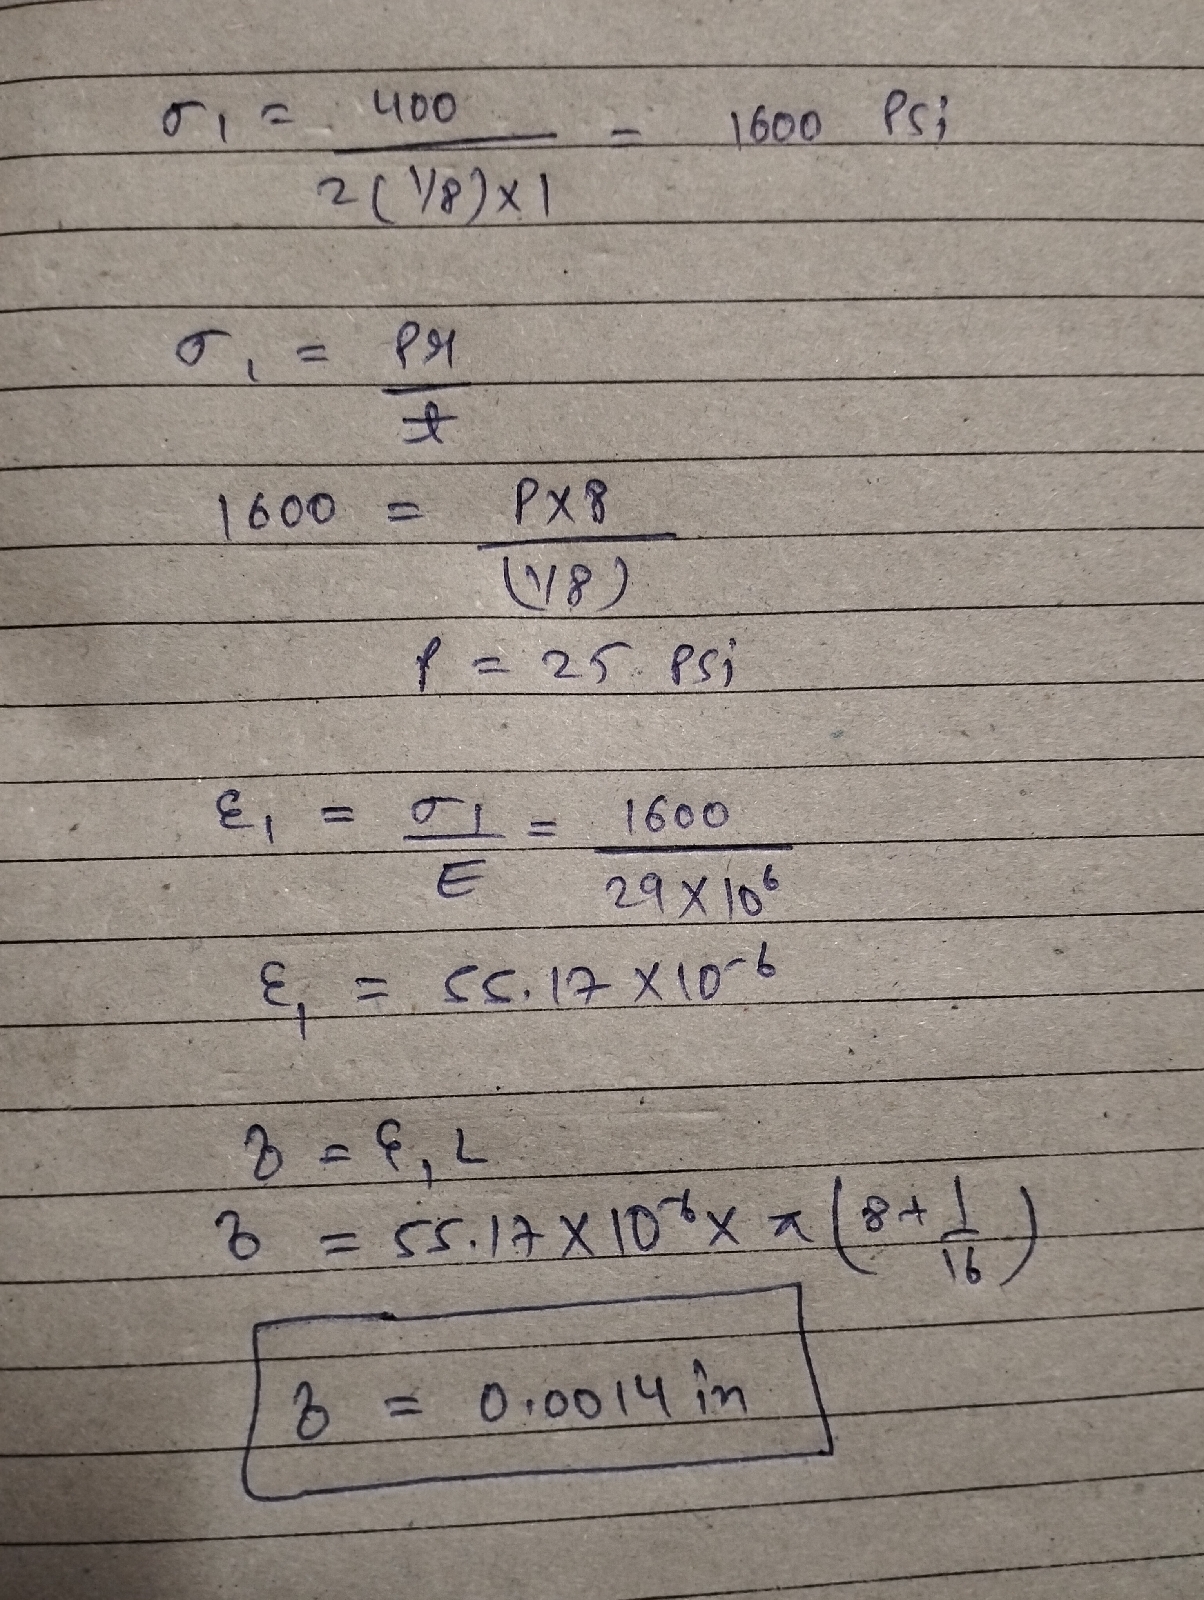 σ₁ = 400 / 2(1/8)×1 = 1600 Psi
σ₁ = Pr / t
1600 = P×8 / (1/8)
P = 25 Psi
ε₁ = σ₁ / E = 1600 / 29×10⁶
ε₁ = 55.17×10⁻⁶
δ = ε₁L
δ = 55.17×10⁻⁶×π(8+1/16)
δ = 0.0014 in